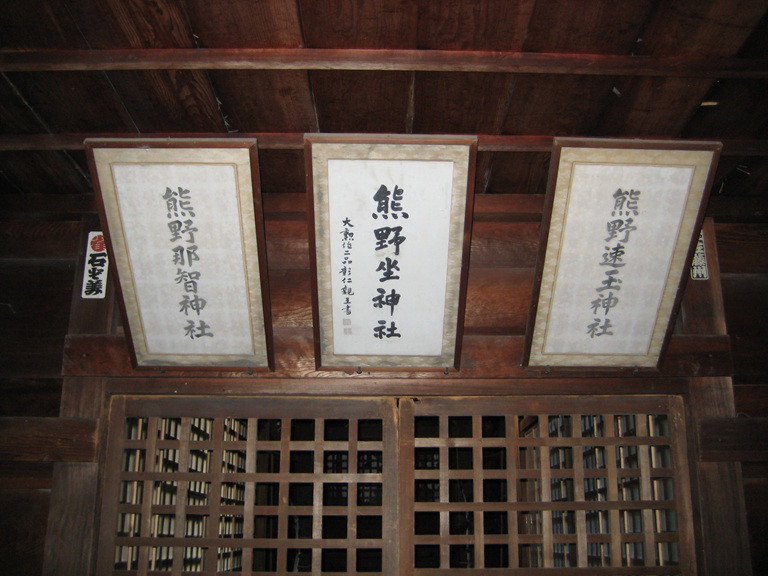 熊野速玉神社
熊野坐神社
大勲位二品彰仁親王書
熊野那智神社